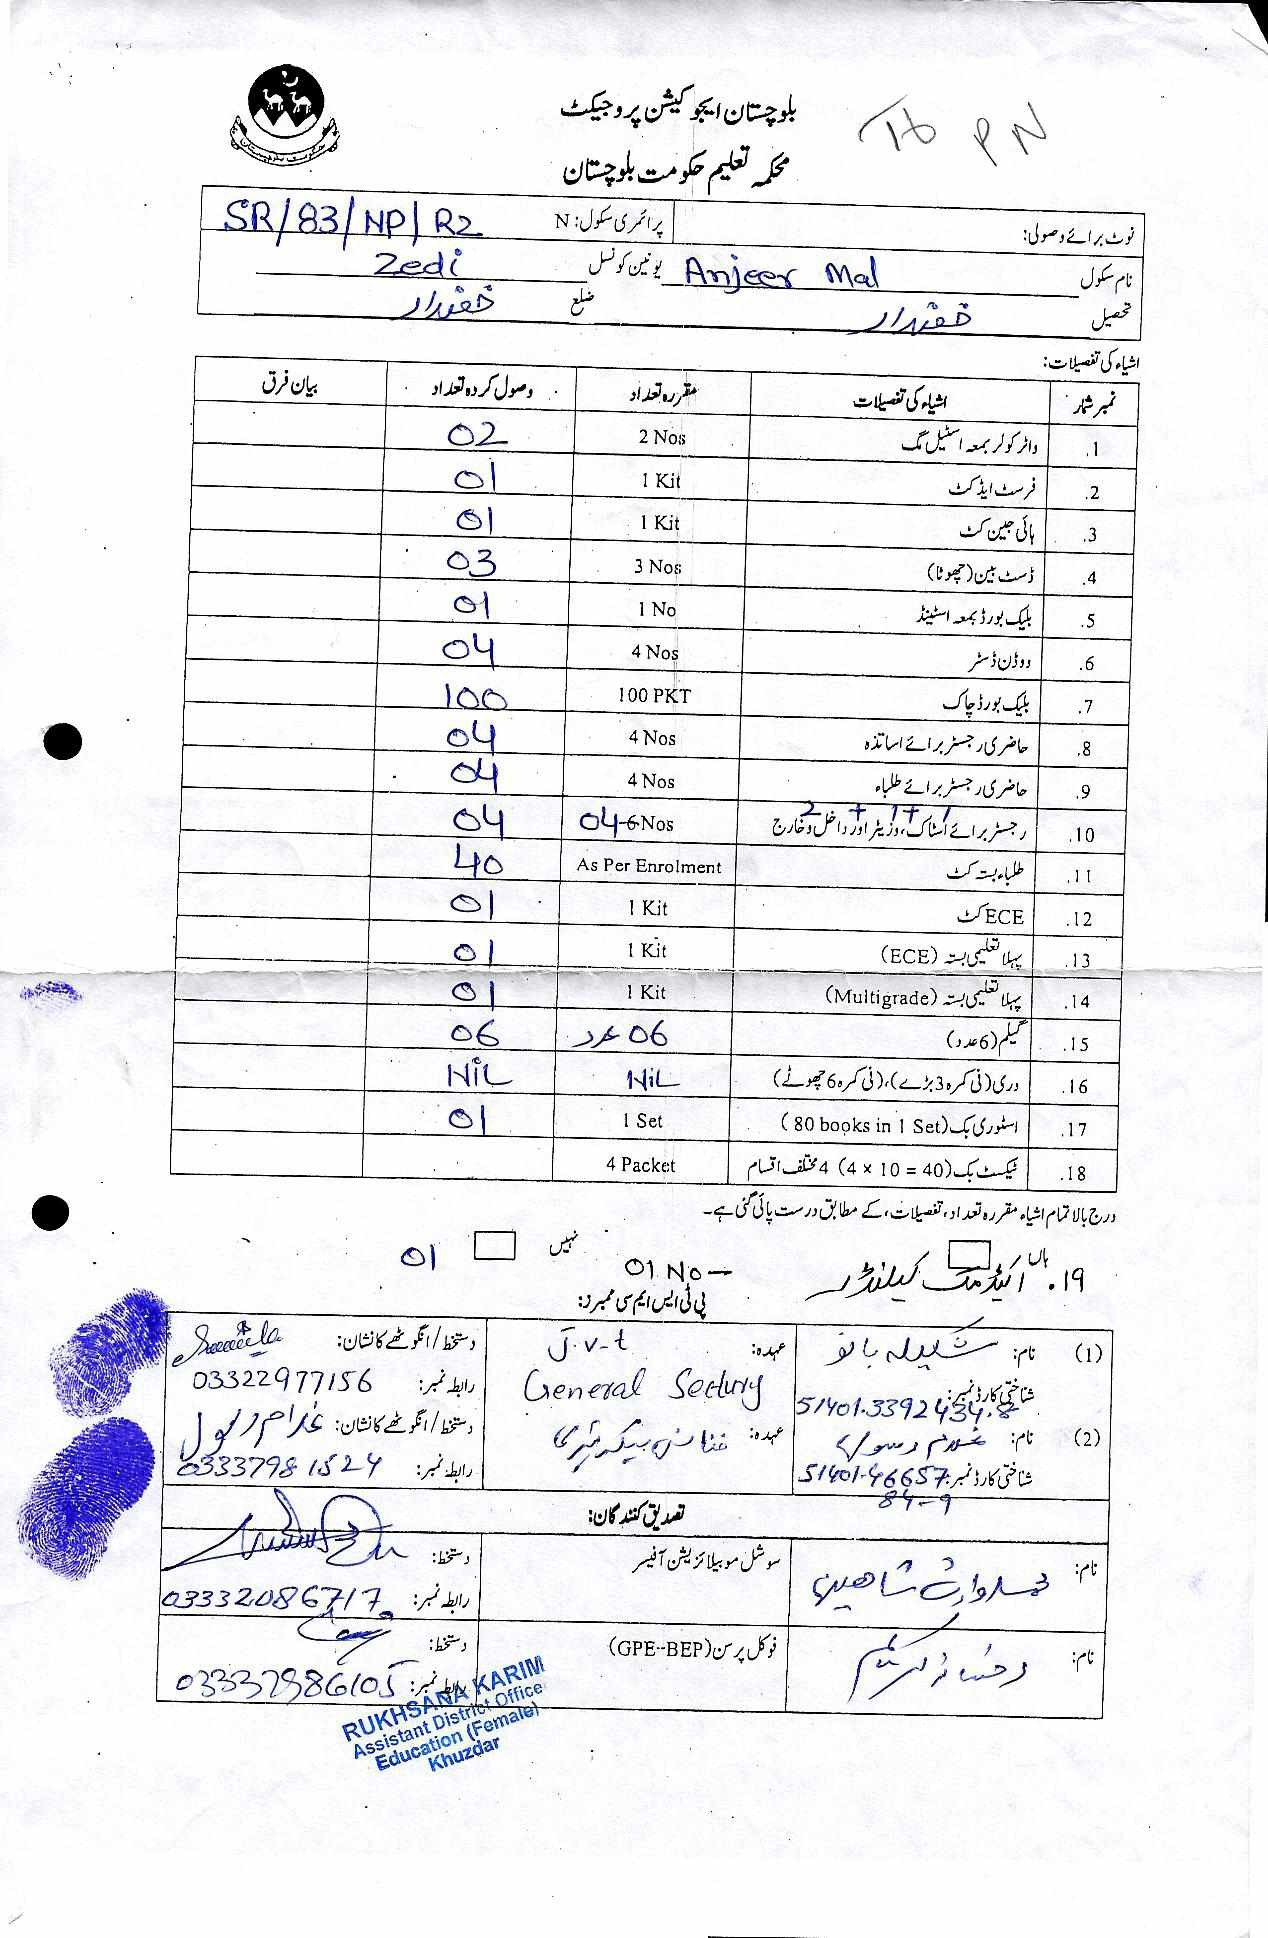 بلوچستان ایجوکیشن پروجیکٹ
محکمہ تعلیم حکومت بلوچستان
PN
نوٹ برائے وصولی: پرائمری سکول: N SR/83/NP/R2
نام سکول Anjeer Mal یونین کونسل Zedi
تحصیل خضدار ضلع خضدار
اشیاء کی تفصیلات:
نمبر شمار اشیاء کی تفصیلات مقررہ تعداد وصول کردہ تعداد بیان فرق
1. واٹر کولر بمعہ اسٹیل مگ 2 Nos 02
2. فرسٹ ایڈ کٹ 1 Kit 01
3. ہائی جین کٹ 1 Kit 01
4. ڈسٹ بین (چھوٹا) 3 Nos 03
5. بلیک بورڈ بمعہ اسٹینڈ 1 No 01
6. ووڈن ڈسٹر 4 Nos 04
7. بلیک بورڈ چاک 100 PKT 100
8. حاضری رجسٹر برائے اساتذہ 4 Nos 04
9. حاضری رجسٹر برائے طلباء 4 Nos 04
2 + 1 + 1
10. رجسٹر برائے اسٹاک، وزیٹر اور داخل و خارج 04 6 Nos 04
11. طلباء بستہ کٹ As Per Enrolment 40
12. ECE کٹ 1 Kit 01
13. پہلا تعلیمی بستہ (ECE) 1 Kit 01
14. پہلا تعلیمی بستہ (Multigrade) 1 Kit 01
15. گلیم (6 عدد) 06 عدد 06
16. دری (فی کمرہ 3 بڑے)، (فی کمرہ 6 چھوٹے) NiL NiL
17. اسٹوری بک (80 books in 1 Set) 1 Set 01
18. ٹیکسٹ بک (4 × 10 = 40) 4 مختلف اقسام 4 Packet
درج بالا تمام اشیاء مقررہ تعداد، تفصیلات، کے مطابق درست پائی گئی ہے۔
ہاں نہیں
19. اکیڈمک کیلنڈر 01 No 01
پی ٹی ایس ایم سی ممبرز:
(1) نام: شکیلہ بانو عہدہ: J.v-t دستخط/انگوٹھے کا نشان:
شناختی کارڈ نمبر: 51401-3392434-8 General رابطہ نمبر: 03322977156
(2) نام: غلام رسول عہدہ: فنانس سیکرٹری دستخط/انگوٹھے کا نشان: غلام رسول
شناختی کارڈ نمبر: 51401-46657 رابطہ نمبر: 03337981524
84-9
تصدیق کنندگان:
نام: شاہین سوشل موبیلائزیشن آفیسر دستخط:
رابطہ نمبر: 03332086717
نام: رخسانہ کریم فوکل پرسن (GPE--BEP) دستخط:
رابطہ نمبر: 03337986105
RUKHSANA KARIM
Assistant District Office
Education (Female)
Khuzdar